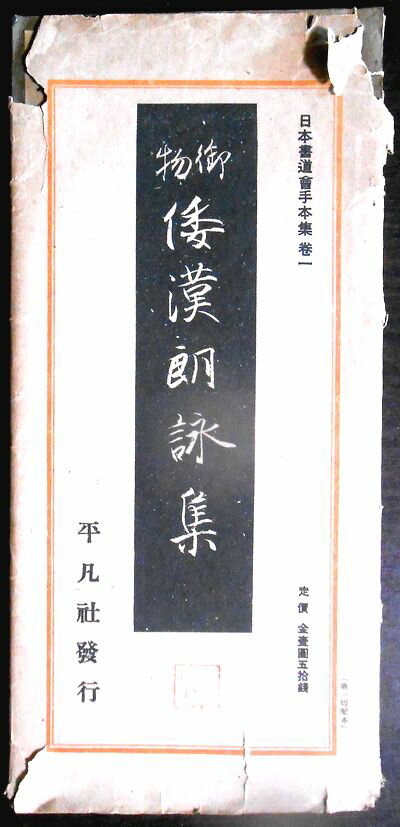 日本書道會手本集 卷一
御物
倭漢朗詠集
定價 金壹圓五拾錢
平凡社發行